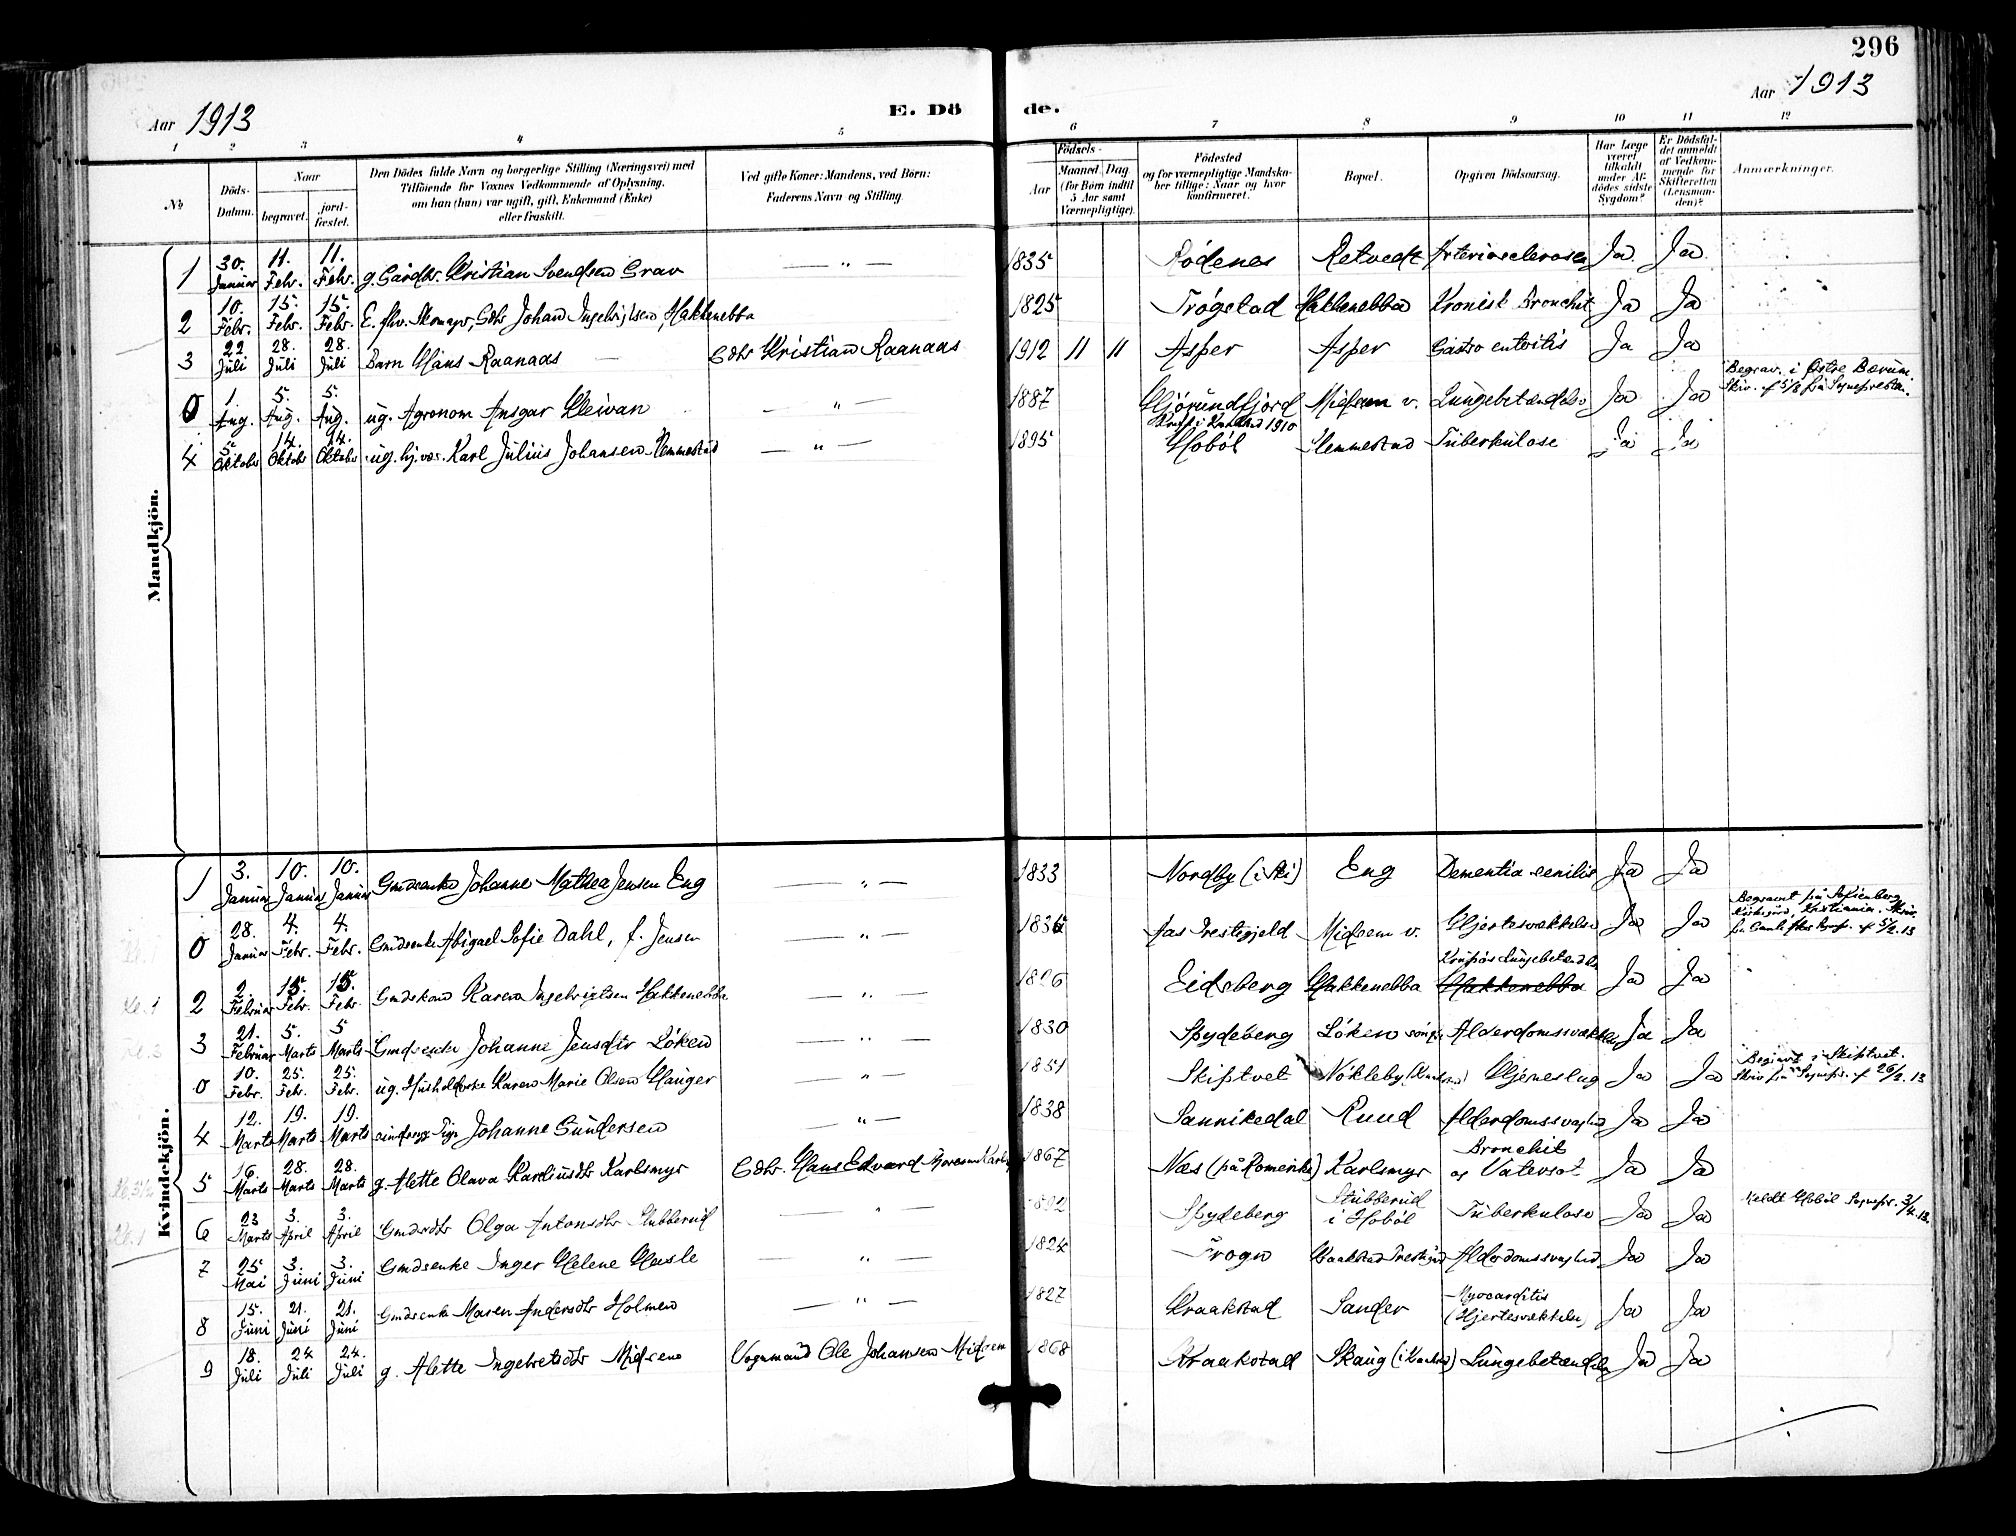 296
Aar 1913
E. Dö de.
Aar 1913
1 2 3 4 5 6 7 8 9 10 11 12
No
Döds-Datum.
Naar
begravet.
jord-fæstet.
Den Dödes fulde Navn og borgerlige Stilling (Næringsvei) med
Tilföiende for Voxnes Vedkommende af Oplysning,
om han (hun) var ugift, gift, Enkemand (Enke)
eller fraskilt.
Ved gifte Koner: Mandens, ved Börn:
Faderens Navn og Stilling.
Födsels-
Aar
Maaned. Dag
(for Börn indtil
5 Aar samt
Værnepligtige).
Födested
og for værnepligtige Mandska-
ber tillige: Naar og hvor
konfirmeret.
Bopæl.
Opgiven Dödsaarsag.
Har Læge
været
tilkaldt
under Af-
dödes sidste
Sygdom?
Er Dödsfal-
det anmeldt
af Vedkom-
mende for
Skifteretten
(Lensman-
den)?
Anmærkninger.
Mandkjön.
1 30. Januar 11. Febr. 11. Febr. g. Gårdbr. Kristian Svendsen Grav — " — 1835 Rödenes Retvedt Arteriosclerose Ja Ja
2 10. Febr. 15. Febr. 15. Febr. E. fhv. Skomager, Gbr Johan Ingebrigtsen, Hakkenebba 1825 Trögstad Hakkenebba Kronisk Bronchit Ja Ja
3 22 Juli 28. Juli 28. Juli Barn Hans Raanaas — Gbr Kristian Raanaas 1912 11 11 Asper Asper Gastro enteritis Ja Ja
0 1. Aug. 5. Aug. 5. Aug. ug. Agronom Ansgar Kleivan — " — 1887 Hjörundfjord Midsem v. Lungebetændelse Ja Ja Begrav. i Östre Bærum.
Skiv. af 5/8 fra Sognepresten.
4 5. Oktober 14. Oktobr 14. Oktobr ug. Karl Julius Johansen Klemmestad — " — 1895 Konf. i Kraakstad 1910
Hoböl Klemmestad Tuberkulose Ja Ja
Kvindekjön.
1 3. Januar 10. Januar 10. Januar Gmdsenke Johanne Mathea Jensen Eng — " — 1833 Nordby (i Ski) Eng Dementia senilis Ja Ja
0 28. Januar 4. Febr. 4. Febr. Gmdsenke Abigael Sofie Dahl, f. Jensen — " — Aas Prestegjeld Midsem v. Hjertesvækkelse Ja Ja Begravet på Sofienberg
Kirkegård, Kristiania.
2 2. Februar 15. Febr. 15. Febr. Gmdskone Karen Ingebrigtsen Hakkenebba — " — Eidsberg Hakkenebba Krupös Lungebetændelse
Hakkenebba Ja Ja
3 21. Februar 5. Marts 5 Marts Gmdsenke Johanne Jensdtr Löken — " — 1830 Spydeberg Löken Alderdomssvækkelse Ja Ja
0 10. Febr. 25. Febr. 25. Febr. ug. Karen Marie Olsen Hauger — " — 1851 Skiptvet Nökleby Hjerneslag Ja Ja Begravet i Skiptvet.
Skiv fra Sognepr. af 26/2 13
4 12. Marts 19. Marts 19. Marts Pige Johanne Gundersen — " — 1838 Sannikedal Ruud Alderdomssvaghed Ja Ja
5 16. Marts 28. Marts 28. Marts g. Alette Olava Karliusdtr Karlsmyr Gbr. Hans Edvard 1867 Næs (på Romerike) Karlsmyr Bronchit
og Vatersot Ja Ja
6 23 Marts 3. April 3. April Gmdsdtr Olga Antonsdtr Stubberud — " — Spydeberg Stubberud
i Hoböl Tuberkulose Ja Ja Meldt Hoböl Sognepr. 3/4 13.
7 25 Mai 3. Juni 3. Juni Gmdsenke Inger Helene Hasle — " — 1824 Frogn Alderdomssvaghed Ja Ja
8 15. Juni 21. Juni 21. Juni Gmdsenke Maren Andersdtr Holmen — " — 1827 Kraakstad Sander Myocarditis
(Hjertesvækkelse) Ja Ja
9 18. Juli 24 Juli 24. Juli g. Alette Ingebretsdtr Midsem Vognmand Ole Johansen Midsem 1868 Kraakstad Skaug (i Kraakstad) Lungebetændelse Ja Ja